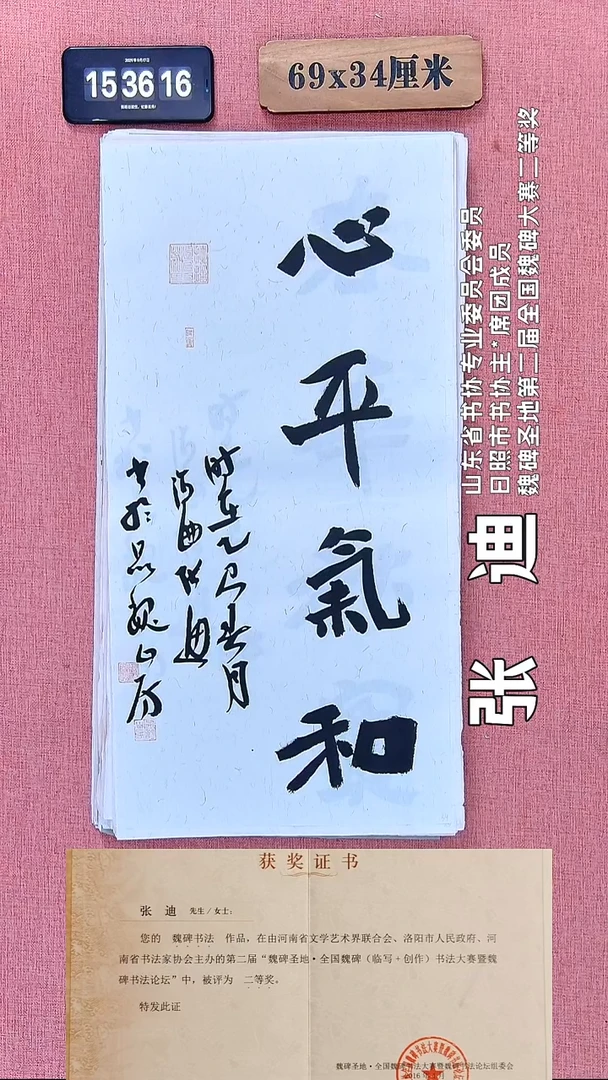 15 36 16
69x34厘米
山东省书协专业委员会委员
日照市书协主*席团成员
魏碑圣地第二届全国魏碑大赛二等奖
张 迪
心平氣和
时在乙巳春月
张迪
书於
获奖证书
张 迪 先生/女士:
您的 魏碑书法 作品,在由河南省文学艺术界联合会、洛阳市人民政府、河
南省书法家协会主办的第二届“魏碑圣地·全国魏碑(临写+创作)书法大赛暨魏
碑书法论坛”中,被评为 二等奖。
特发此证
魏碑圣地·全国魏碑书法大赛暨魏碑书法论坛组委会